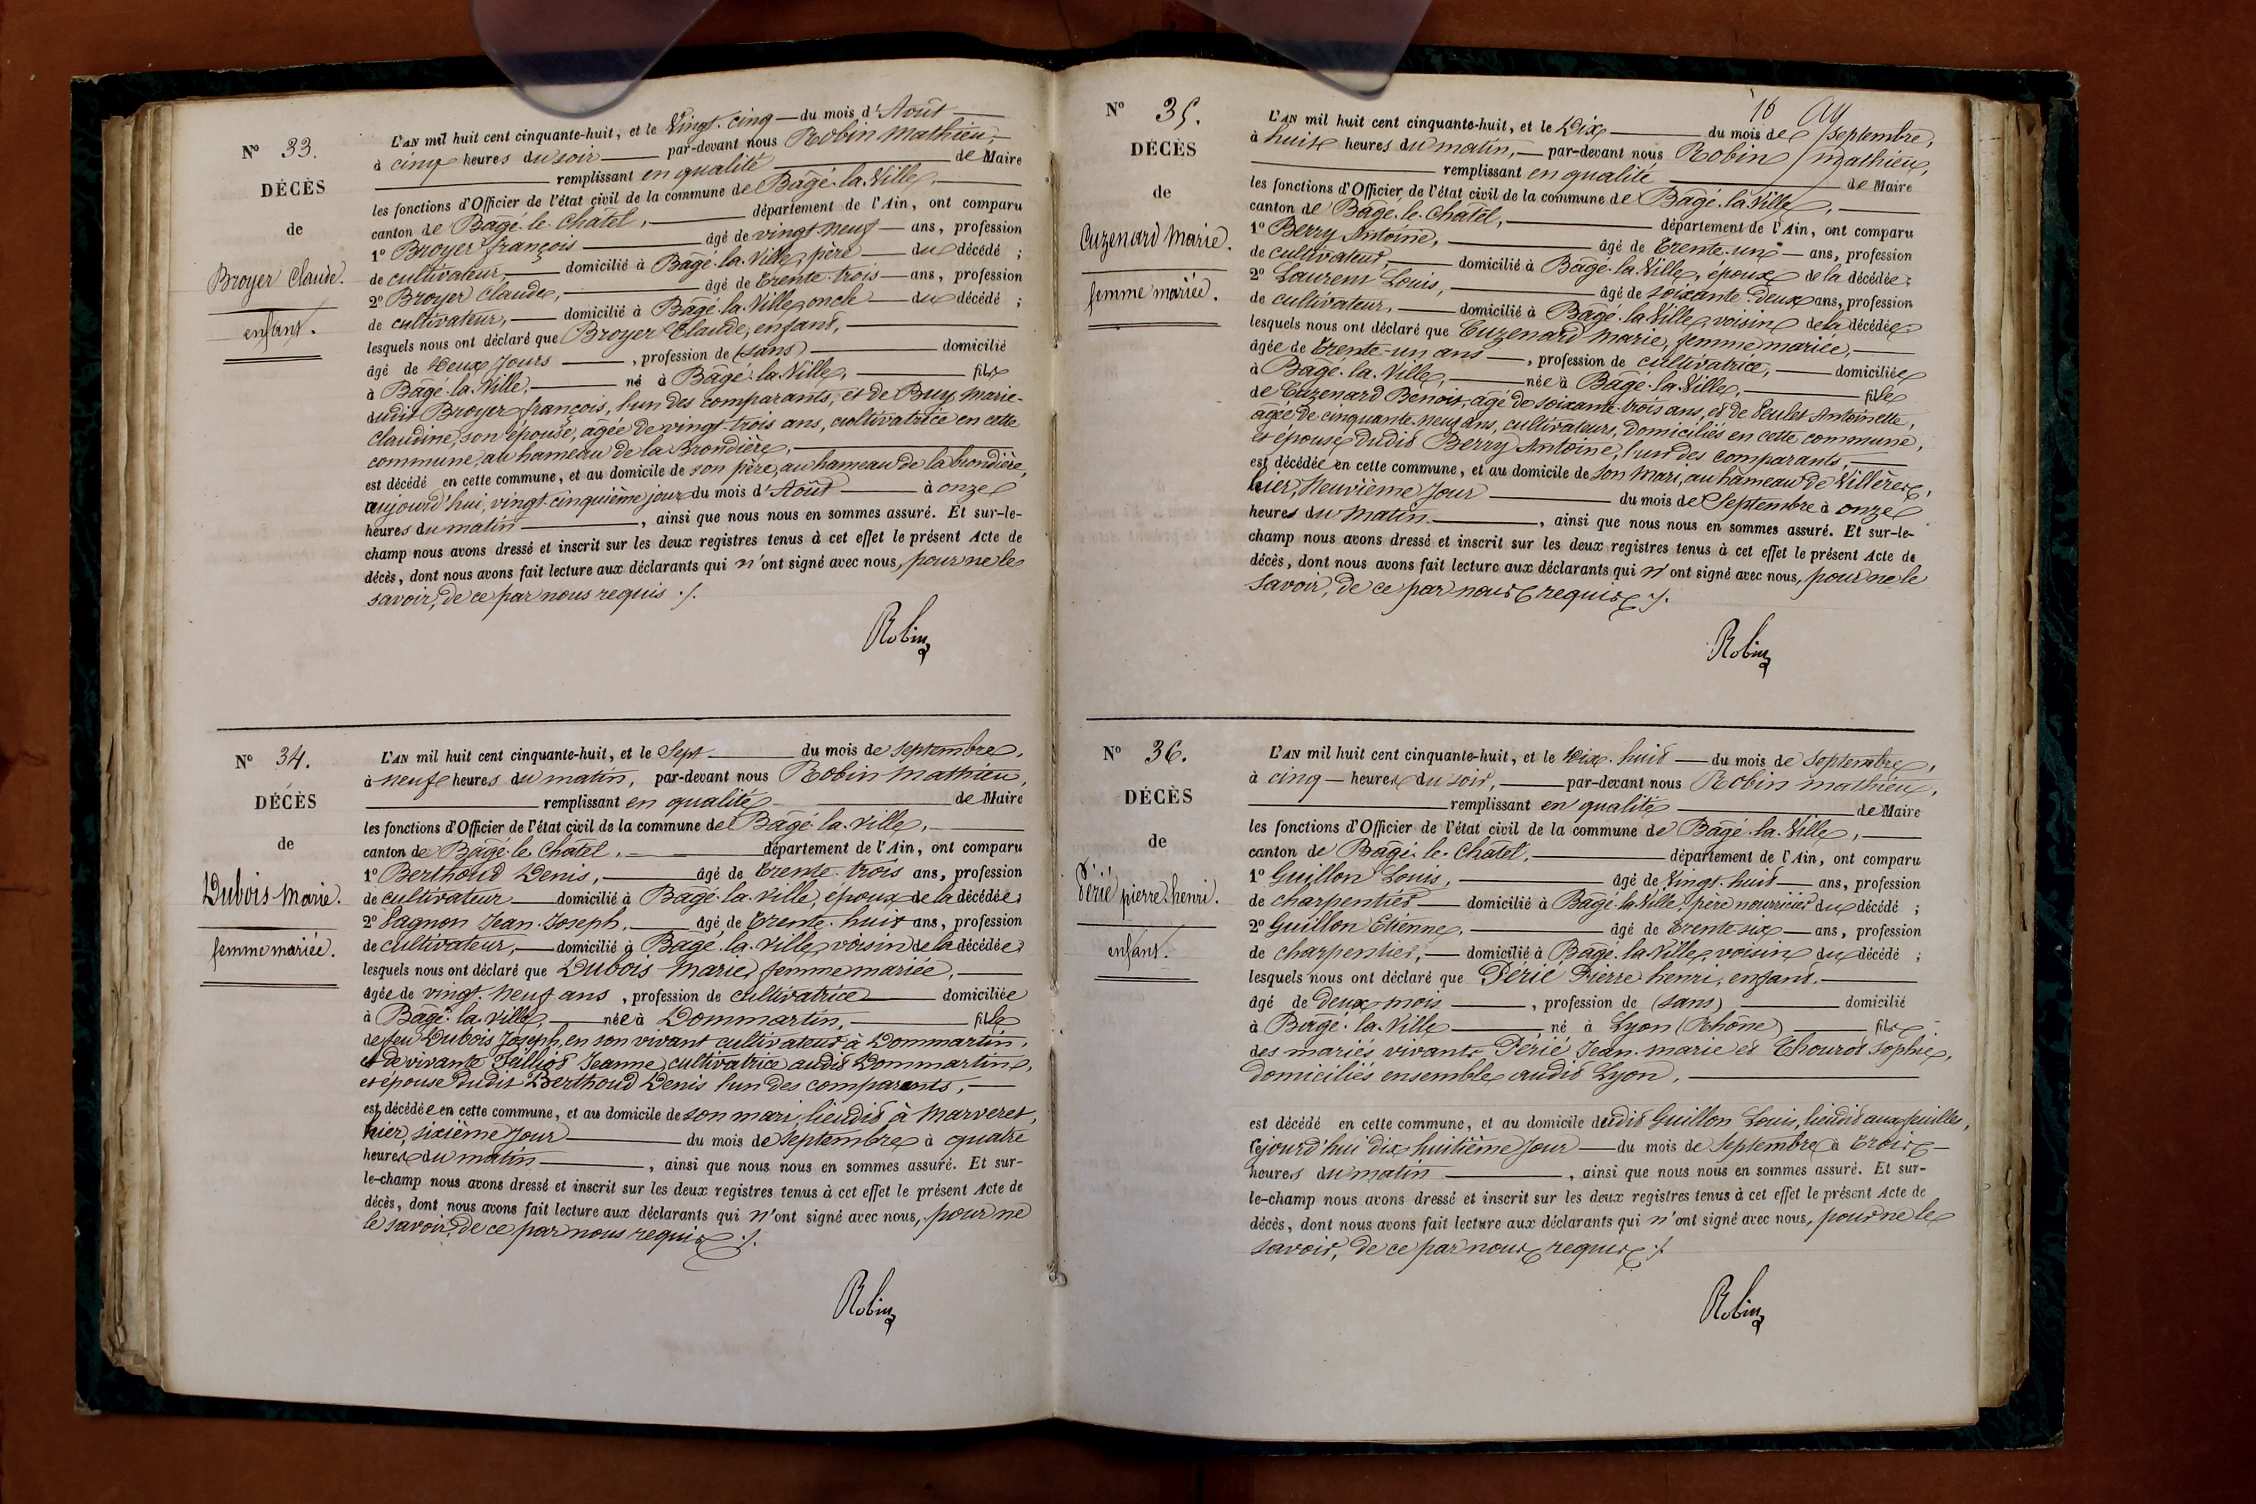 N° 33.
DÉCÈS
de
Broyer Claude.
enfant.
L'AN mil huit cent cinquante-huit, et le Vingt-cinq du mois d'Août
à cinq heures du soir par-devant nous Robin Mathieu,
remplissant en qualité de Maire
les fonctions d'Officier de l'état civil de la commune de Bâgé-la-Ville,
canton de Bâgé-le-Châtel, département de l'Ain, ont comparu
1° Broyer françois âgé de vingt-neuf ans, profession
de cultivateur, domicilié à Bâgé-la-Ville, père du décédé ;
2° Broyer Claude, âgé de trente-trois ans, profession
de cultivateur, domicilié à Bâgé-la-Ville, oncle du décédé ;
lesquels nous ont déclaré que Broyer Claude, enfant,
âgé de Deux Jours, profession de (sans) domicilié
à Bâgé-la-Ville, né à Bâgé-la-Ville, fils
dudit Broyer françois, l'un des comparants, et de Buy Marie-
Claudine, son épouse, agée de vingt-trois ans, cultivatrice en cette
commune, au hameau de la Brondière,
est décédé en cette commune, et au domicile de son père, au hameau de la brondière,
aujourd'hui, vingt-cinquième jour du mois d'Août à onze
heures du matin, ainsi que nous nous en sommes assuré. Et sur-le-
champ nous avons dressé et inscrit sur les deux registres tenus à cet effet le présent Acte de
décès, dont nous avons fait lecture aux déclarants qui n'ont signé avec nous, pour ne le
savoir, de ce par nous requis ./.
Robin
N° 34.
DÉCÈS
de
Dubois Marie.
femme mariée.
L'AN mil huit cent cinquante-huit, et le Sept du mois de septembre,
à neuf heures du matin, par-devant nous Robin Mathieu,
remplissant en qualité de Maire
les fonctions d'Officier de l'état civil de la commune de Bâgé-la-Ville,
canton de Bâgé-le-Châtel, département de l'Ain, ont comparu
1° Berthoud Denis, âgé de trente-trois ans, profession
de cultivateur domicilié à Bâgé-la-Ville, époux de la décédée ;
2° Pagnon Jean-Joseph, âgé de trente-huit ans, profession
de cultivateur, domicilié à Bâgé-la-Ville, voisin de la décédée ;
lesquels nous ont déclaré que Dubois Marie, femme mariée,
âgée de vingt-neuf ans, profession de cultivatrice domiciliée
à Bâgé-la-Ville, née à Dommartin, fille
de feu Dubois Joseph, en son vivant cultivateur à Dommartin,
et de vivante Feilliod Jeanne, cultivatrice audit Dommartin,
et épouse dudit Berthoud Denis l'un des comparants,
est décédée en cette commune, et au domicile de son mari, lieudit à Marveret,
hier, sixième Jour du mois de septembre à quatre
heures du matin, ainsi que nous nous en sommes assuré. Et sur-
le-champ nous avons dressé et inscrit sur les deux registres tenus à cet effet le présent Acte de
décès, dont nous avons fait lecture aux déclarants qui n'ont signé avec nous, pour ne
le savoir, de ce par nous requis ./.
Robin
16
N° 35.
DÉCÈS
de
Cuzenard Marie.
femme mariée.
L'AN mil huit cent cinquante-huit, et le Dix du mois de septembre,
à huit heures du matin, par-devant nous Robin Mathieu,
remplissant en qualité de Maire
les fonctions d'Officier de l'état civil de la commune de Bâgé-la-Ville,
canton de Bâgé-le-Châtel, département de l'Ain, ont comparu
1° Berry Antoine, âgé de trente-un ans, profession
de cultivateur, domicilié à Bâgé-la-Ville, époux de la décédée ;
2° Laurent Louis, âgé de soixante-deux ans, profession
de cultivateur, domicilié à Bâgé-la-Ville, voisin de la décédée
lesquels nous ont déclaré que Cuzenard Marie, femme mariée,
âgée de trente-un ans, profession de cultivatrice, domiciliée
à Bâgé-la-Ville, née à Bâgé-la-Ville, fille
de Cuzenard Benoit, agé de soixante-trois ans, et de Peulet Antoinette,
agée de cinquante-neuf ans, cultivateurs, domiciliés en cette commune,
et épouse dudit Berry Antoine, l'un des comparants,
est décédée en cette commune, et au domicile de son mari, au hameau de Villèreux,
hier, Neuvième Jour du mois de Septembre à onze
heures du matin, ainsi que nous nous en sommes assuré. Et sur-le-
champ nous avons dressé et inscrit sur les deux registres tenus à cet effet le présent Acte de
décès, dont nous avons fait lecture aux déclarants qui n'ont signé avec nous, pour ne le
savoir, de ce par nous requis ./.
Robin
N° 36.
DÉCÈS
de
Périé pierre-henri.
enfant.
L'AN mil huit cent cinquante-huit, et le Dix-huit du mois de septembre,
à cinq heures du soir, par-devant nous Robin mathieu,
remplissant en qualité de Maire
les fonctions d'Officier de l'état civil de la commune de Bâgé-la-Ville,
canton de Bâgé-le-Châtel, département de l'Ain, ont comparu
1° Guillon Louis, âgé de Vingt-huit ans, profession
de charpentier domicilié à Bâgé-la-Ville, père nourricier du décédé ;
2° Guillon Etienne, âgé de trente six ans, profession
de charpentier, domicilié à Bâgé-la-Ville, voisin du décédé ;
lesquels nous ont déclaré que Périé Pierre henri, enfant,
âgé de deux mois, profession de (sans) domicilié
à Bâgé-la-Ville né à Lyon (Rhône) fils
des mariés vivants Périé Jean-marie et Thourot sophie,
domiciliés ensemble audit Lyon,
est décédé en cette commune, et au domicile dudit Guillon Louis, lieudit aux feuilles,
cejourd'hui dix huitième Jour du mois de septembre à trois
heures du matin, ainsi que nous nous en sommes assuré. Et sur-
le-champ nous avons dressé et inscrit sur les deux registres tenus à cet effet le présent Acte de
décès, dont nous avons fait lecture aux déclarants qui n'ont signé avec nous, pour ne le
savoir, de ce par nous requis ./.
Robin